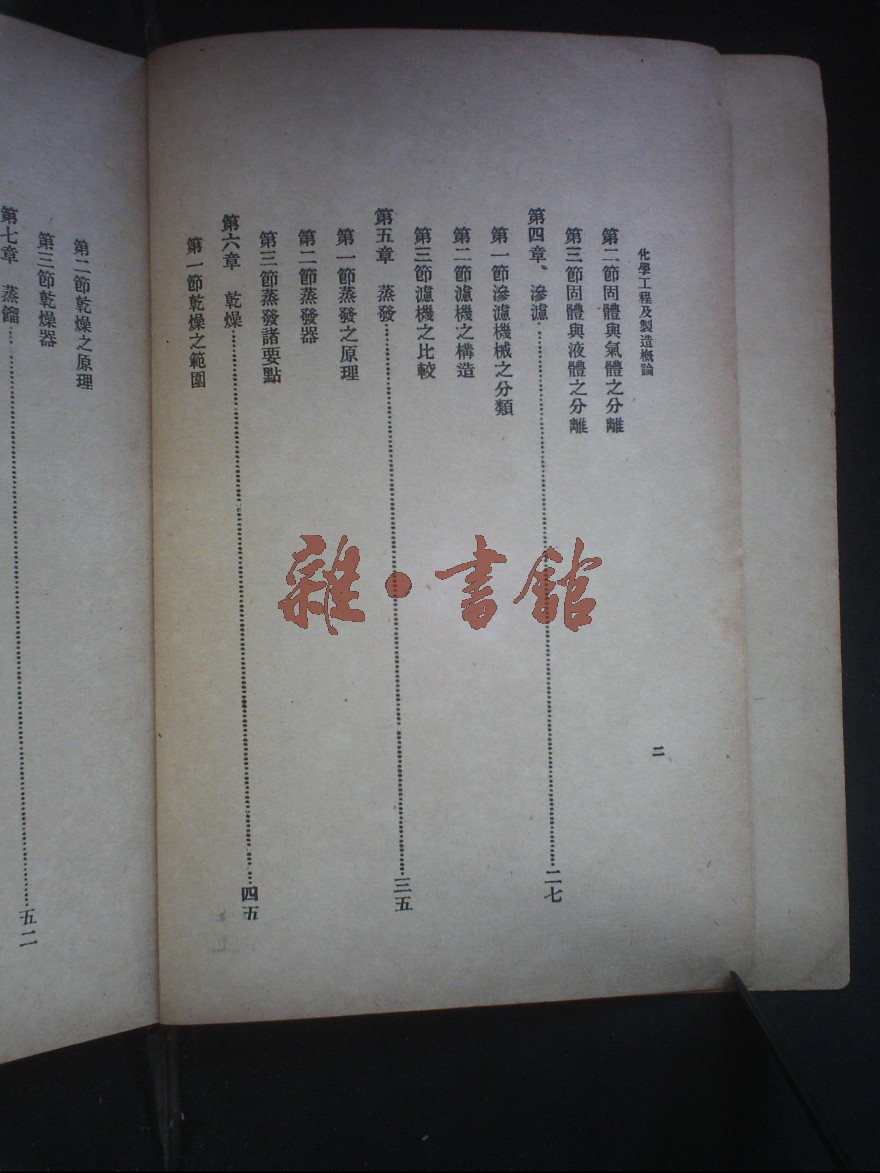 化學工程及製造概論
二
第二節固體與氣體之分離
第三節固體與液體之分離
第四章、滲濾……二七
第一節滲濾機械之分類
第二節濾機之構造
第三節濾機之比較
第五章 蒸發……三五
第一節蒸發之原理
第二節蒸發器
第三節蒸發諸要點
第六章 乾燥……四五
第一節乾燥之範圍
第二節乾燥之原理
第三節乾燥器
第七章 蒸餾……五二
雜·書館